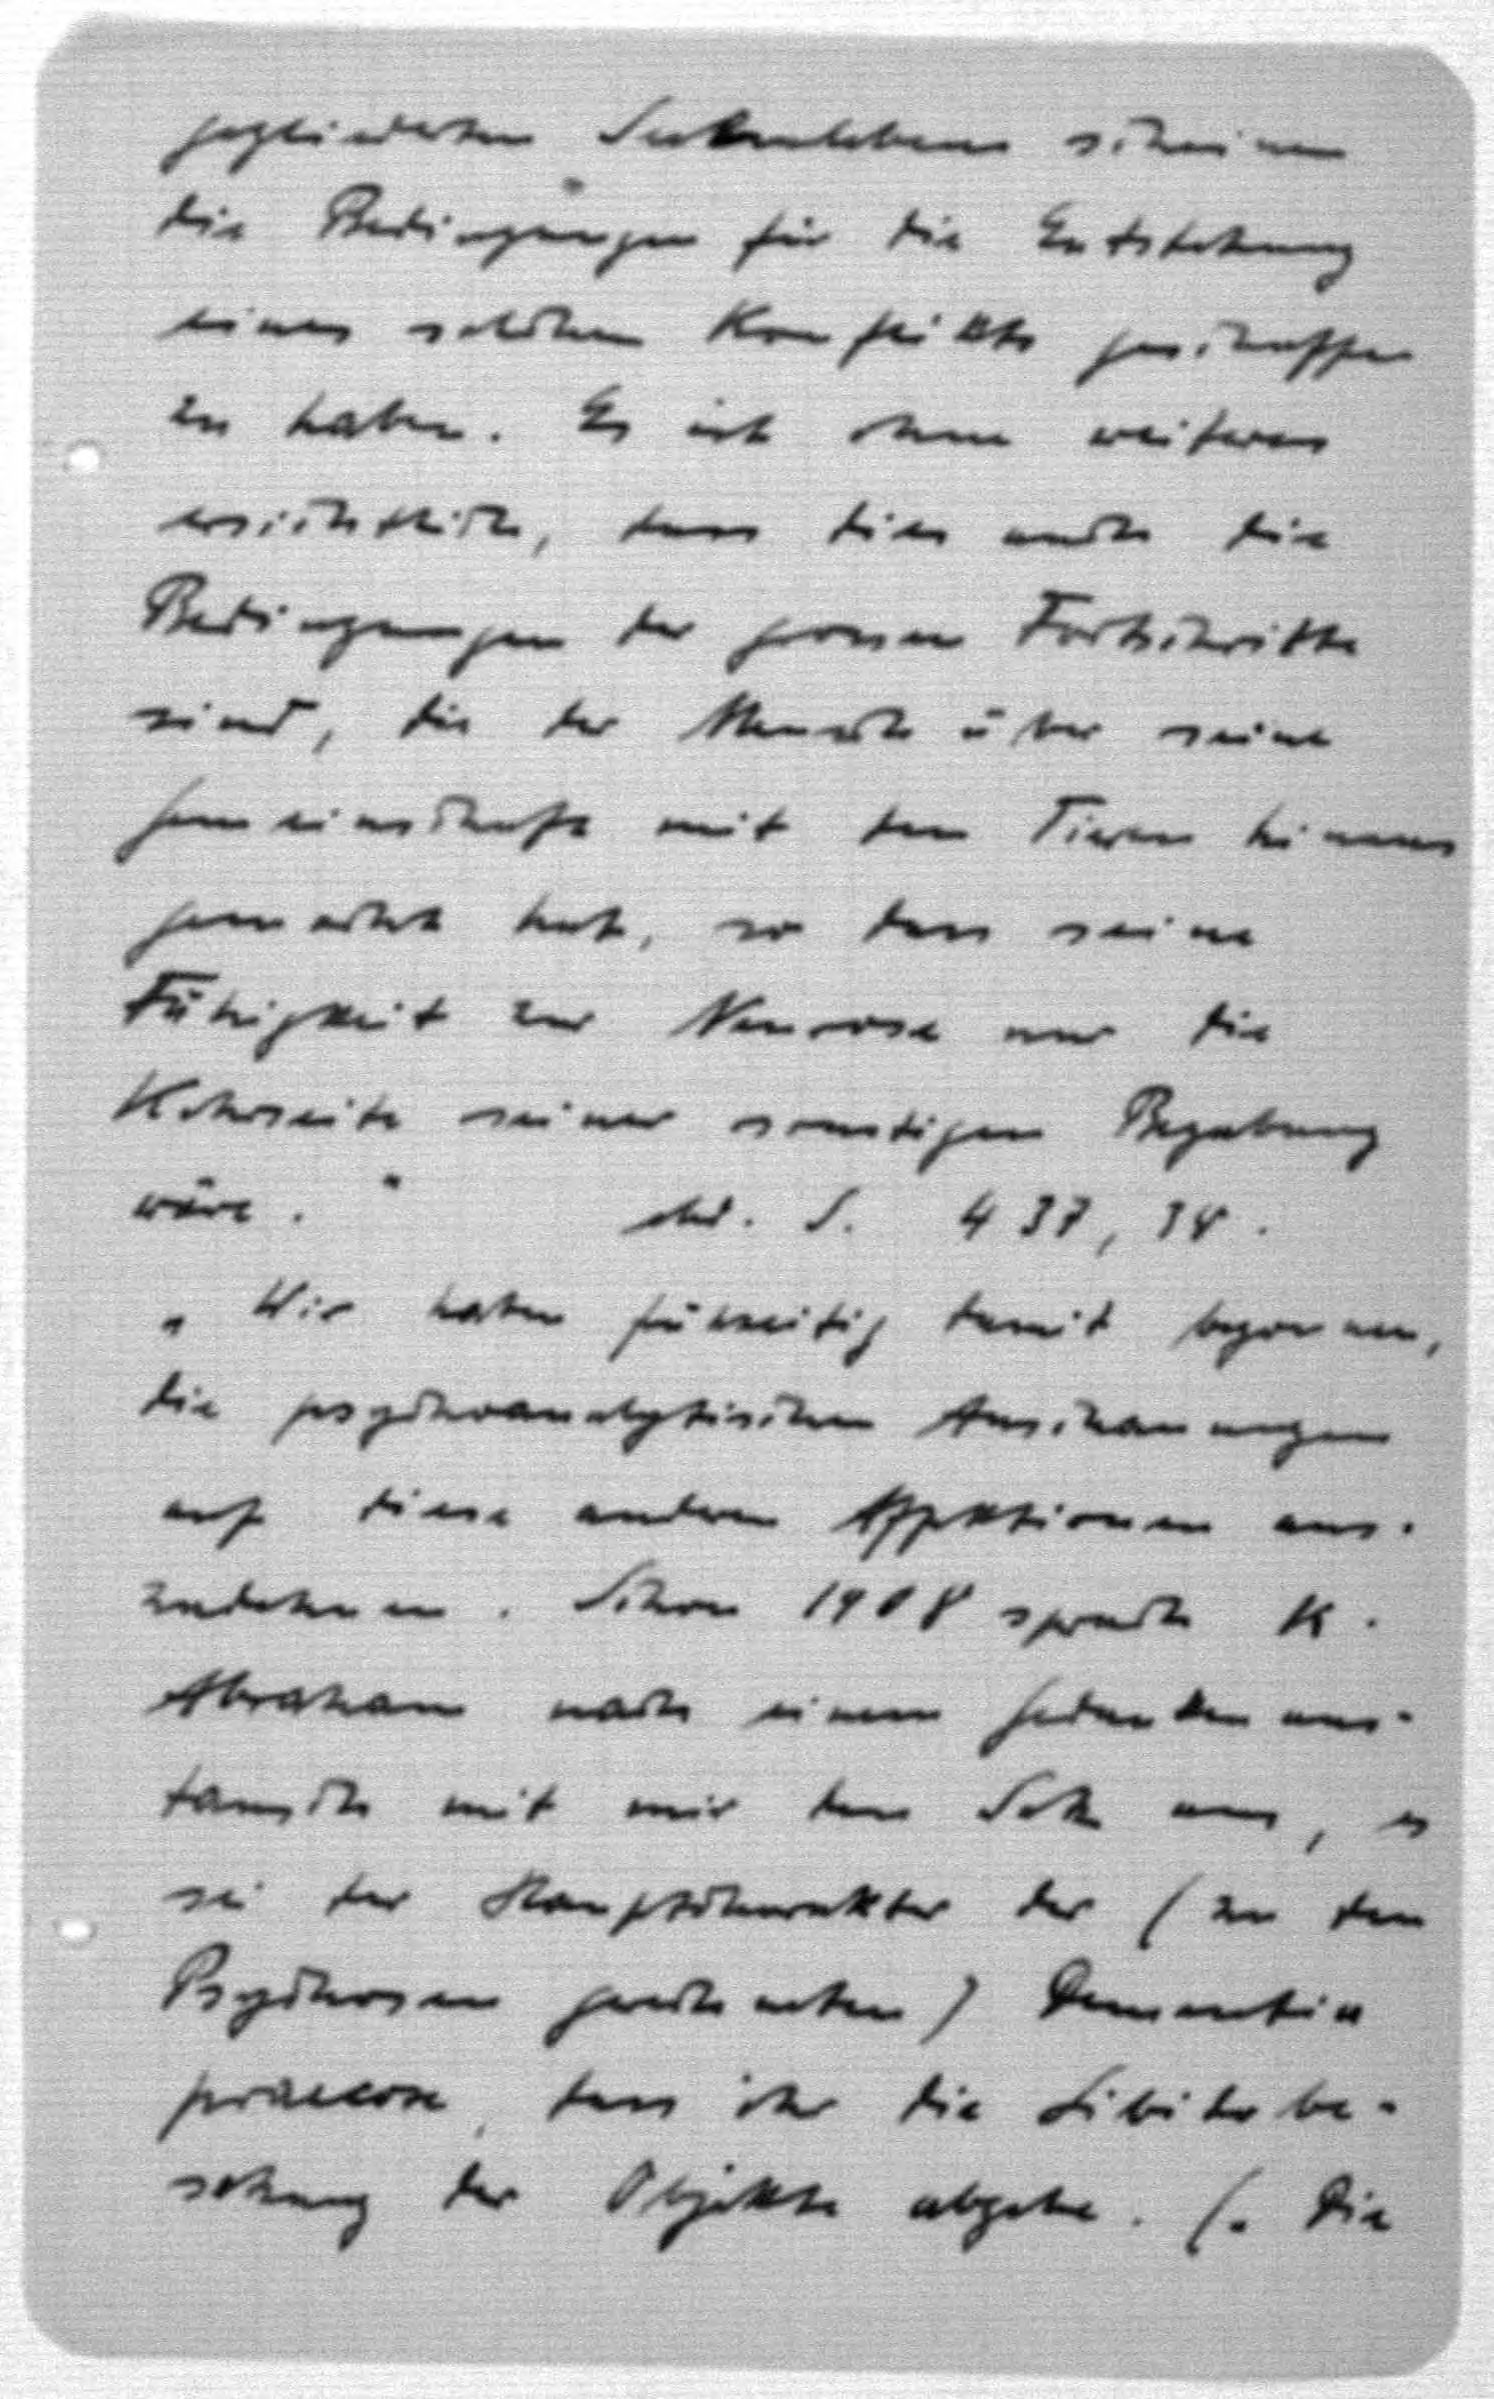 gegliederten Seelenlebens scheinen
die Bedingungen für die Entstehung
eines solchen Konflikts geschaffen
zu haben. Es ist ohne weiteres
ersichtlich, dass dies auch die
Bedingungen der grossen Fortschritte
sind, die der Mensch über seine
Gemeinschaft mit den Tieren hinaus
gemacht hat, so dass seine
Fähigkeit zur Neurose nur die
Kehrseite seiner sonstigen Begabung
wäre." ebd. S. 437, 38.
„Wir haben frühzeitig damit begonnen,
die psychoanalytischen Anschauungen
auf diese anderen Affektionen aus-
zudehnen. Schon 1908 sprach K.
Abraham nach einem Gedankenaus-
tausch mit mir den Satz aus, es
sei der Hauptcharakter der (zu den
Psychosen gerechneten) Dementia
praecox, dass ihr die Libidobe-
setzung der Objekte abgehe. (. Die